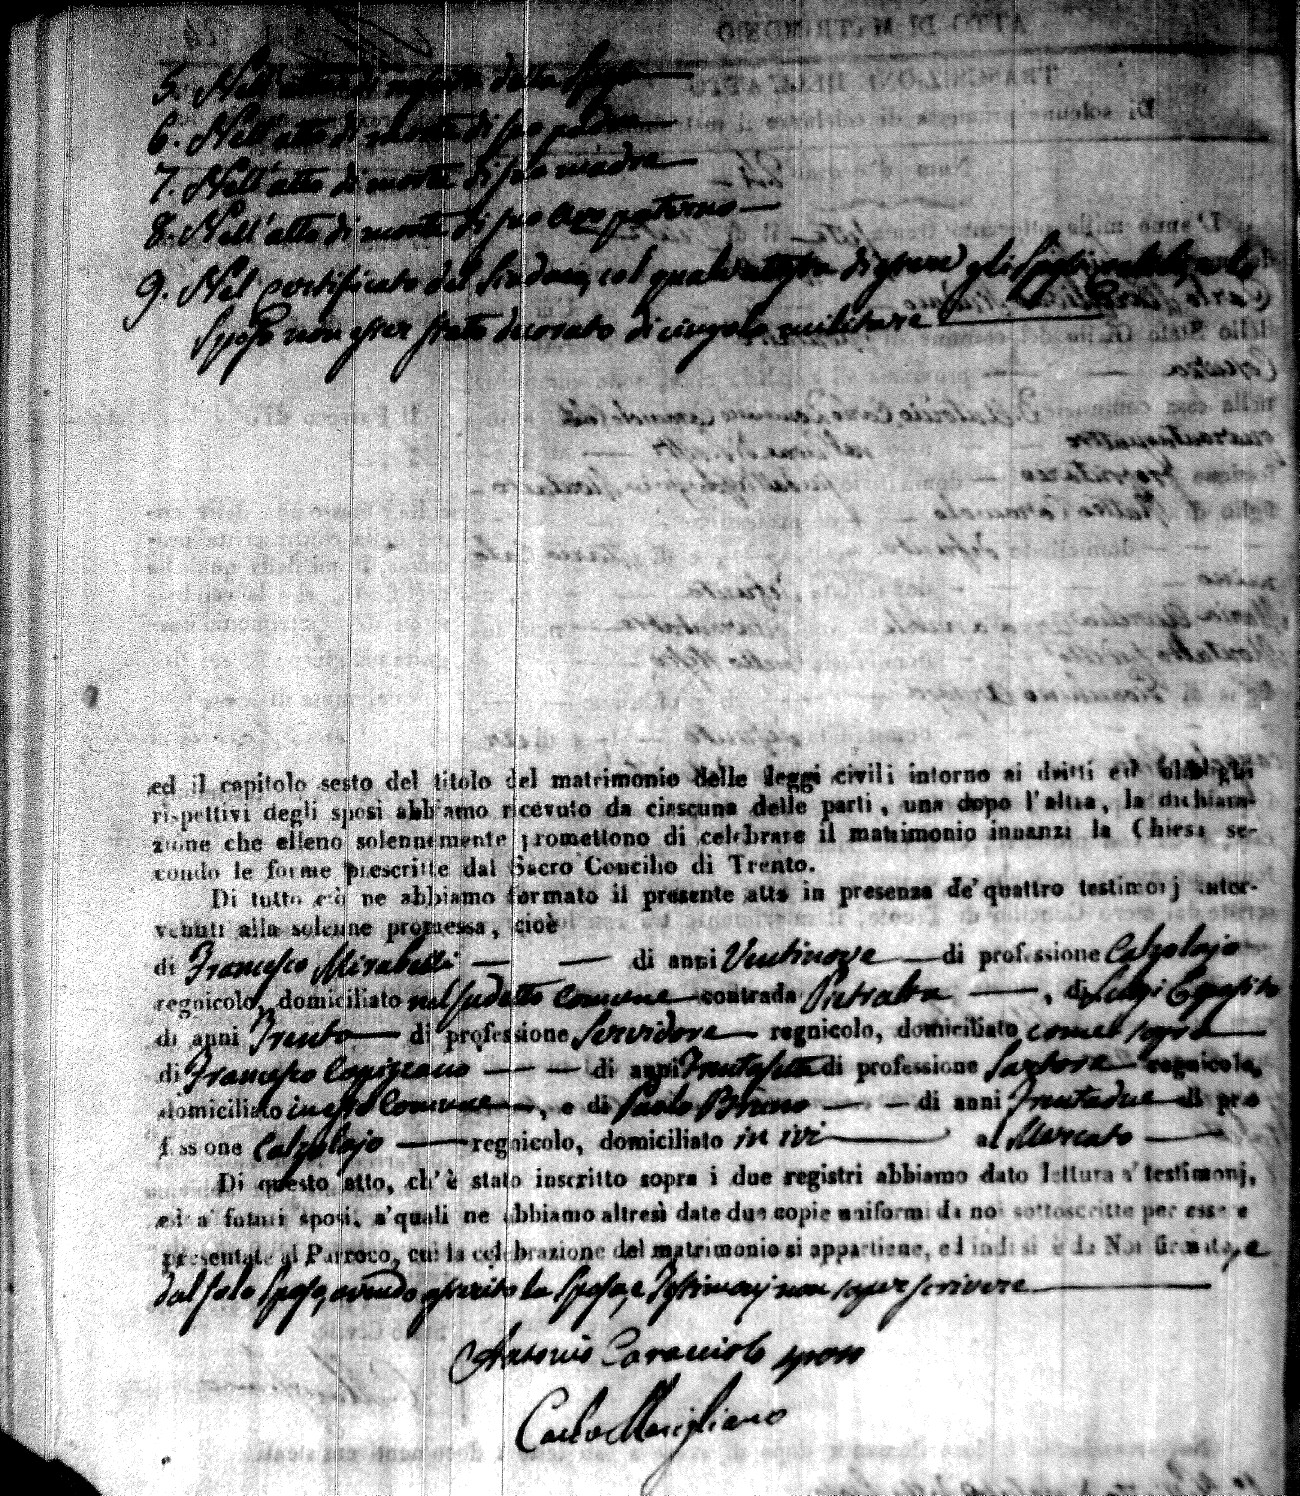 5. Nell'atto di nascita della Sposa
6. Nell'atto di morte di suo padre
7. Nell'atto di morte di sua madre
8. Nell'atto di morte di suo Avo paterno
9. Nel certificato del Sindaco, col quale attesta di essere gli Sposi e lo
Sposo non esser stato decorato di cingolo militare
ed il capitolo sesto del titolo del matrimonio delle leggi civili intorno ai dritti ed obblighi
rispettivi degli sposi abbiamo ricevuto da ciascuna delle parti, una dopo l'altra, la dichiara-
zione che elleno solennemente promettono di celebrare il matrimonio innanzi la Chiesa se-
condo le forme prescritte dal Sacro Concilio di Trento.
Di tutto ciò ne abbiamo formato il presente atto in presenza de' quattro testimonj inter-
venuti alla solenne promessa, cioè
di Francesco Mirabelli — — di anni Ventinove — di professione Calzolajo
regnicolo, domiciliato nel sudetto Comune — contrada Pietralta —, di Luigi Esposito
di anni Trenta — di professione Servidore — regnicolo, domiciliato come sopra —
di Francesco — — di anni Trentasette di professione Sartore — regnicolo,
domiciliato in esso Comune —, e di Paolo Bruno — — di anni Trentadue — di pro
fessione Calzolajo — regnicolo, domiciliato in ivi — al Mercato —
Di questo atto, ch'è stato inscritto sopra i due registri abbiamo dato lettura a' testimonj,
ed a' futuri sposi, a' quali ne abbiamo altresì date due copie uniformi da noi sottoscritte per essere
presentate al Parroco, cui la celebrazione del matrimonio si appartiene, ed indi si è da Noi firmato, e
dal solo Sposo, avendo asserito la Sposa, e Testimonj non saper scrivere
Antonio Caracciolo sposo
Carlo Marigliano